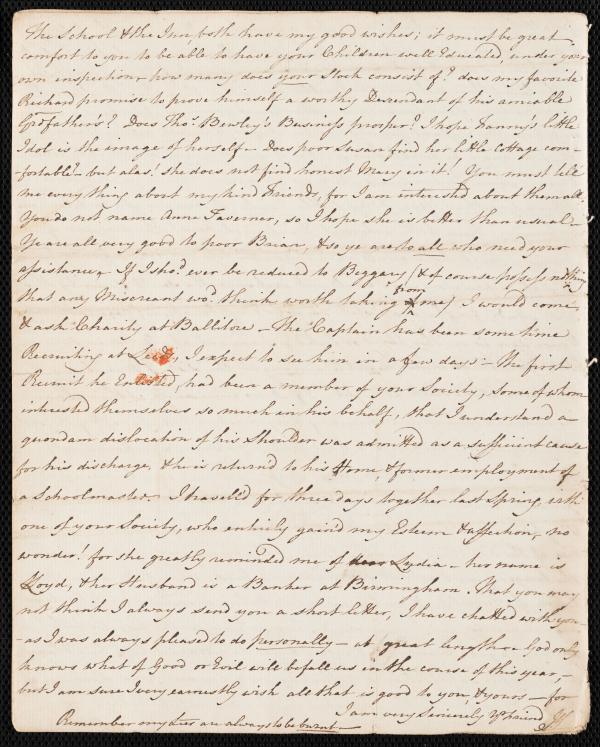 The School & the Inn both have my good wishes; it must be great
comfort to you to be able to have your Children well Educated, under your
own inspection - how many does your Stock consist of? does my favorite
Richard promise to prove himself a worthy Descendant of his amiable
Grdfather's? Does Thos. Bewley's Business prosper? I hope Fanny's little
Idol is the image of herself - Does poor Susan find her little Cottage com-
-fortable? - but alas! she does not find honest Mary in it! You must tell
me every thing about my kind Friends, for I am interested about them all.
You do not name Anne Taverner, so I hope she is better than usual -
Ye are all very good to poor Brian, & so ye are to all who need your
assistance. If I shod. ever be reduced to Beggary (& of course possess nothing
that any Miscreant wod. think worth taking from me) I would come,
& ask Charity at Ballitore - The Captain has been some time
Recruiting at Leeds, I expect to see him in a few days - the first
Recruit he Enlisted, had been a member of your Society, some of whom
interested themselves so much in his behalf, that I understand a
quondam dislocation of his Shoulder was admitted as a sufficient cause
for his discharge, & he is return'd to his Home, & former employment of
a Schoolmaster. I travel'd for three days together last Spring, with
one of your Society, who entirely gain'd my Esteem & affection, no
wonder! for she greatly reminded me of Lydia - her name is
Lloyd, & her Husband is a Banker at Birmingham. That you may
not think I always send you a short letter, I have chatted with you -
- as I was always pleased to do personally - at great length - God only
knows what of Good or Evil will befall us in the course of this year, -
but I am sure I very earnestly wish all that is good to you, & yours - for
I am very Sincerely Yr. friend
Remember my are always to be burnt -